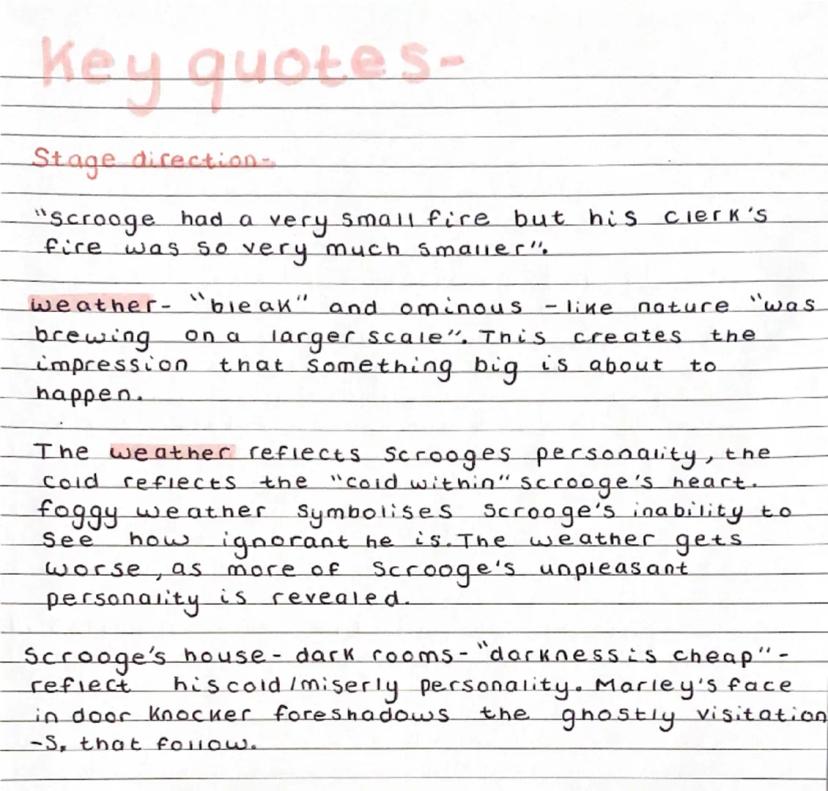 Key quotes-
Stage direction-
"Scrooge had a very small fire but his clerk's
fire was so very much smaller".
weather- "bleak" and ominous - like nature "was
brewing on a larger scale". This creates the
impression that something big is about to
happen.
The weather reflects Scrooges personality, the
cold reflects the "cold within" scrooge's heart.
foggy weather symbolises Scrooge's inability to
see how ignorant he is. The weather gets
worse, as more of Scrooge's unpleasant
personality is revealed.
Scrooge's house - dark rooms - "darkness is cheap" -
reflect his cold/miserly personality. Marley's face
in door knocker foreshadows the ghostly visitation
-s, that follow.